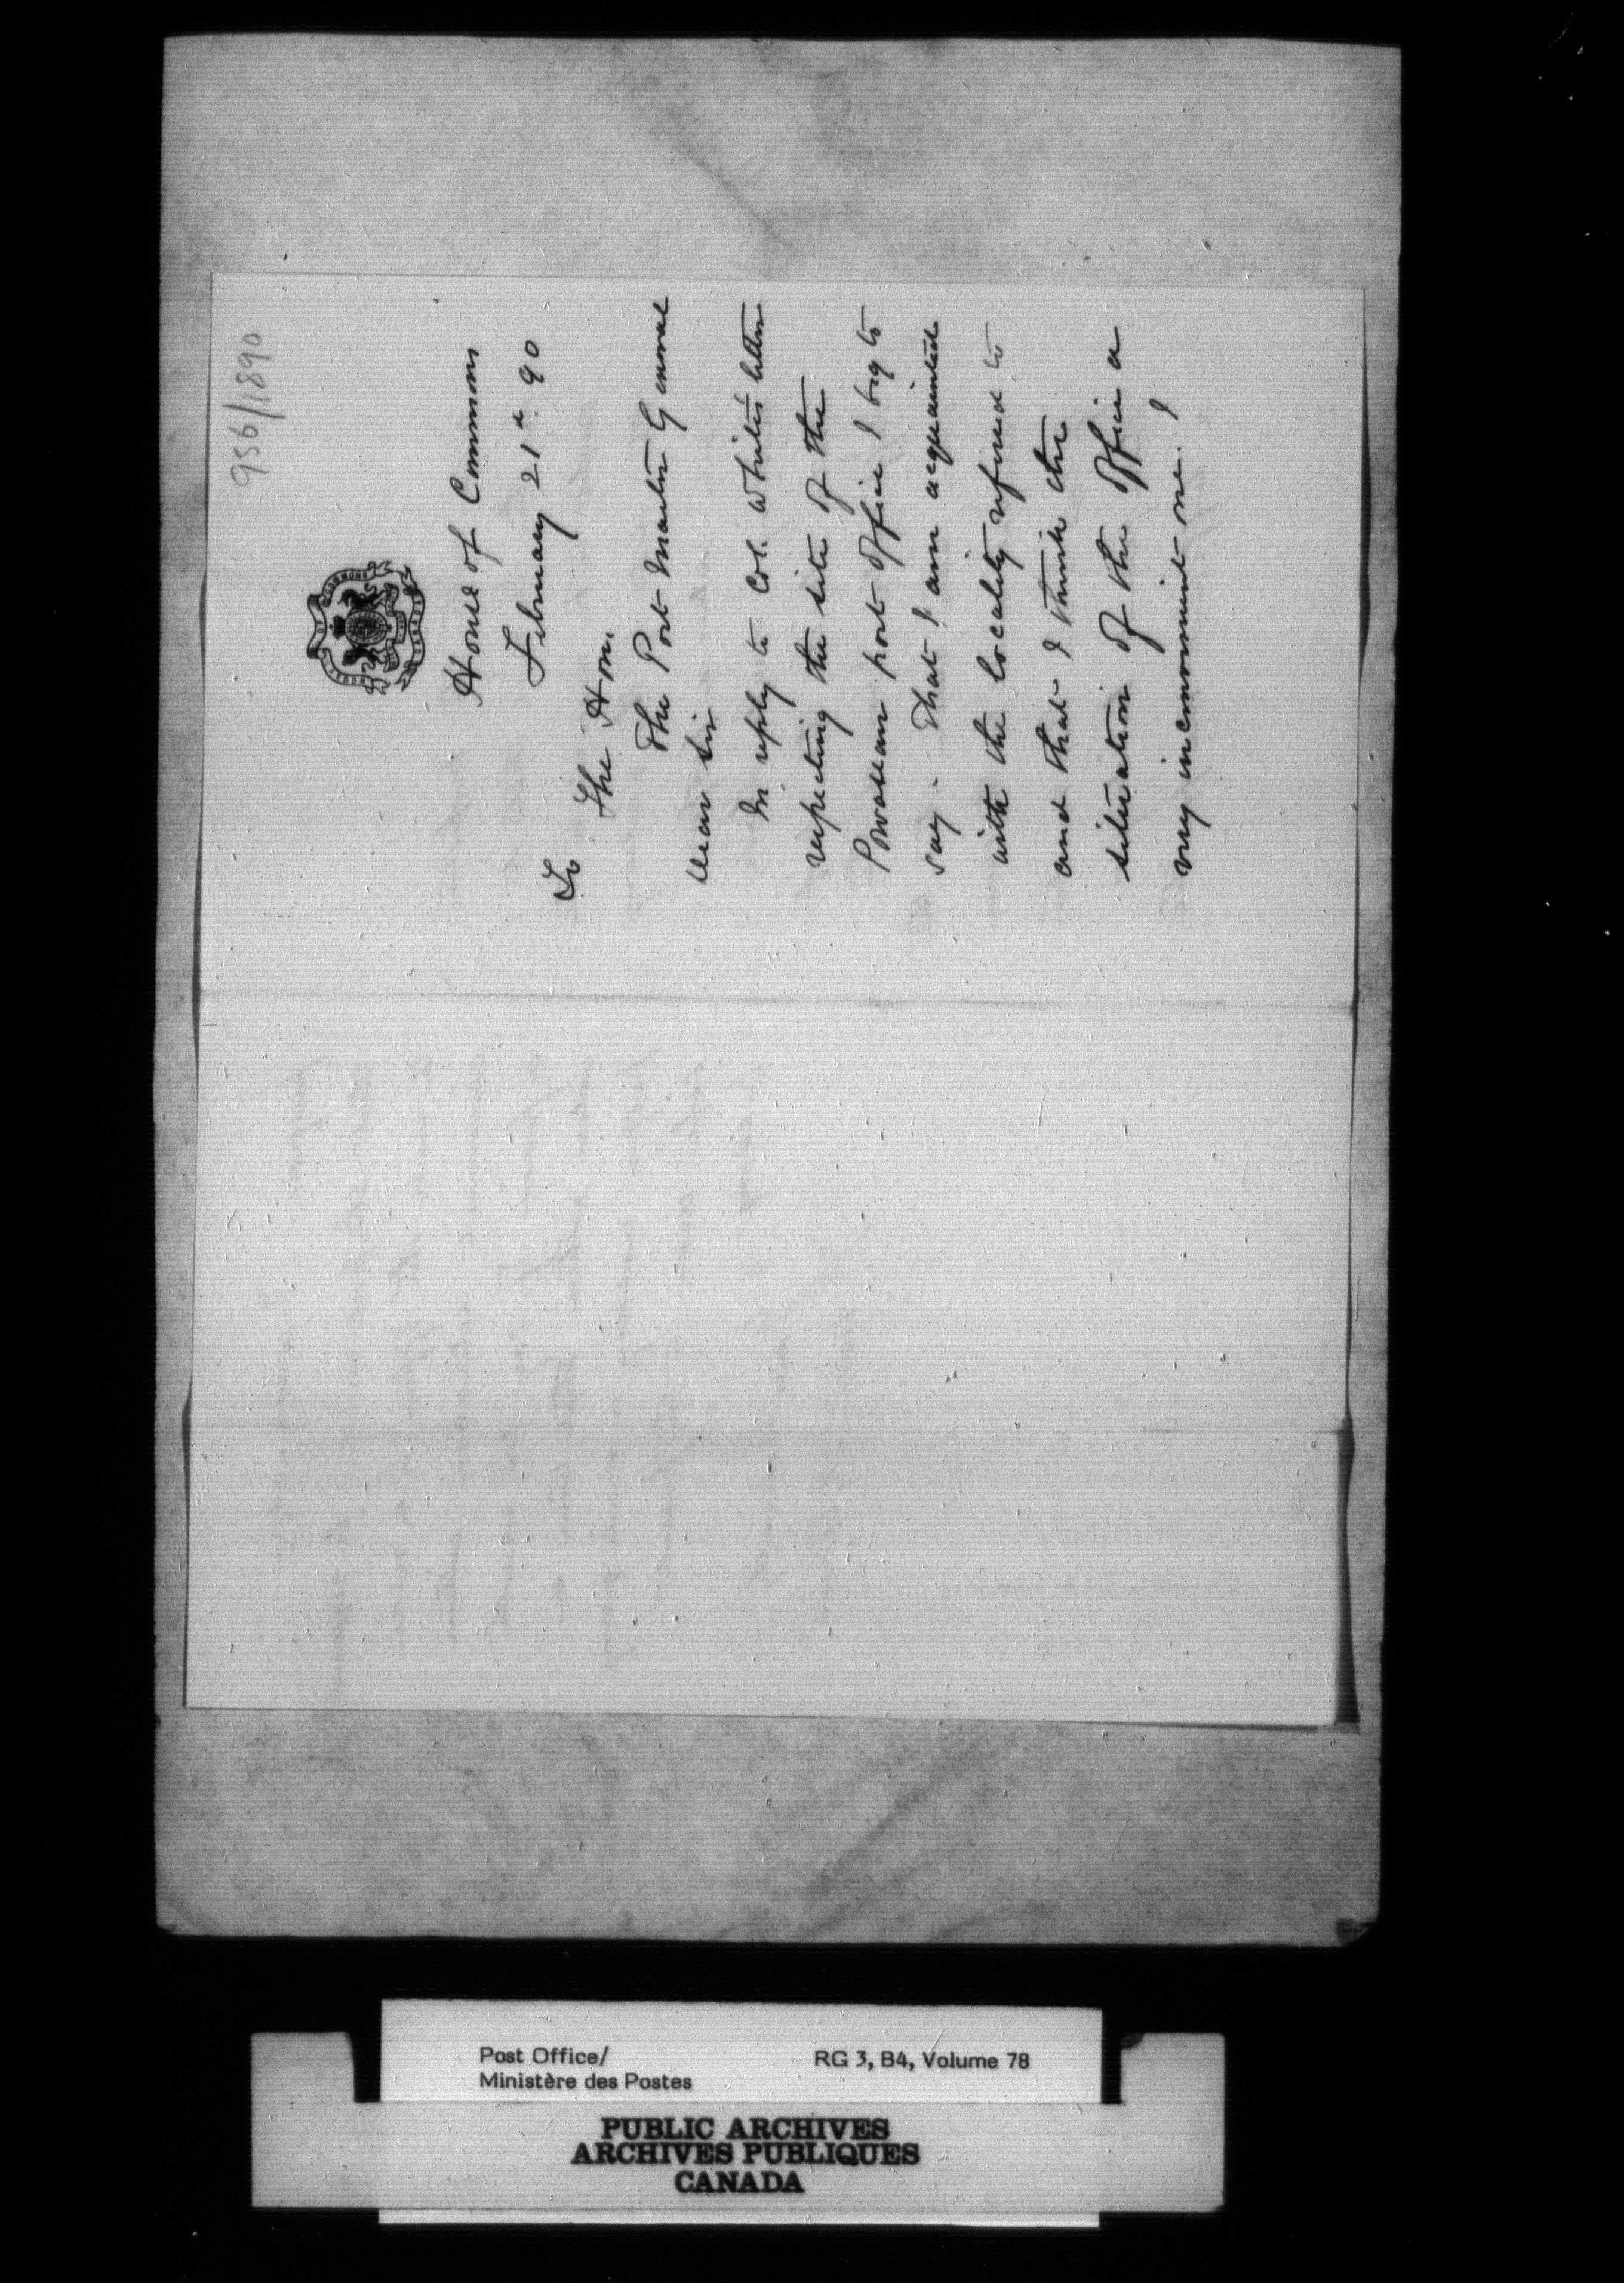 956/1890
HOUSE OF COMMONS
CANADA
House of Commons
February 21st. 90
To
The Hon.
The Post Master General
Dear Sir
In reply to Col. White's letter
respecting the site of the
Powassan post office I beg to
say - That I am acquainted
with the locality refered to
and that I think the
situation of the office a
very inconvenient one. I
Post Office/
Ministère des Postes
RG 3, B4, Volume 78
PUBLIC ARCHIVES
ARCHIVES PUBLIQUES
CANADA